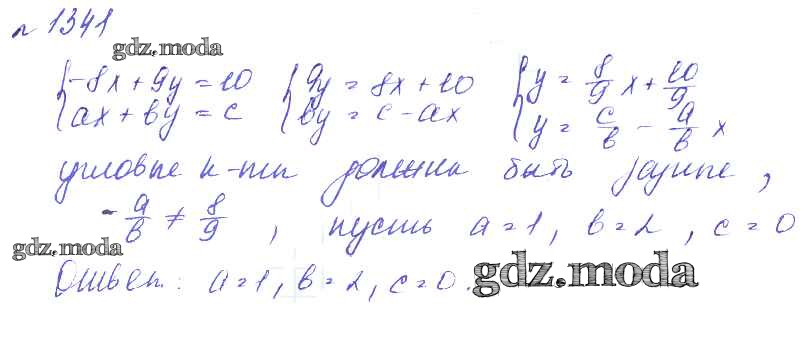 № 1341
gdz.moda
{-8x + 9y = 10 {9y = 8x + 10 {y = 8/9 x + 10/9
{ax + by = c {by = c - ax {y = c/b - a/b x
угловые к-ты должны быть разные,
-a/b ≠ 8/9 , пусть a=1, b=2, c=0
gdz.moda
Ответ: a=1, b=2, c=0.
gdz.moda